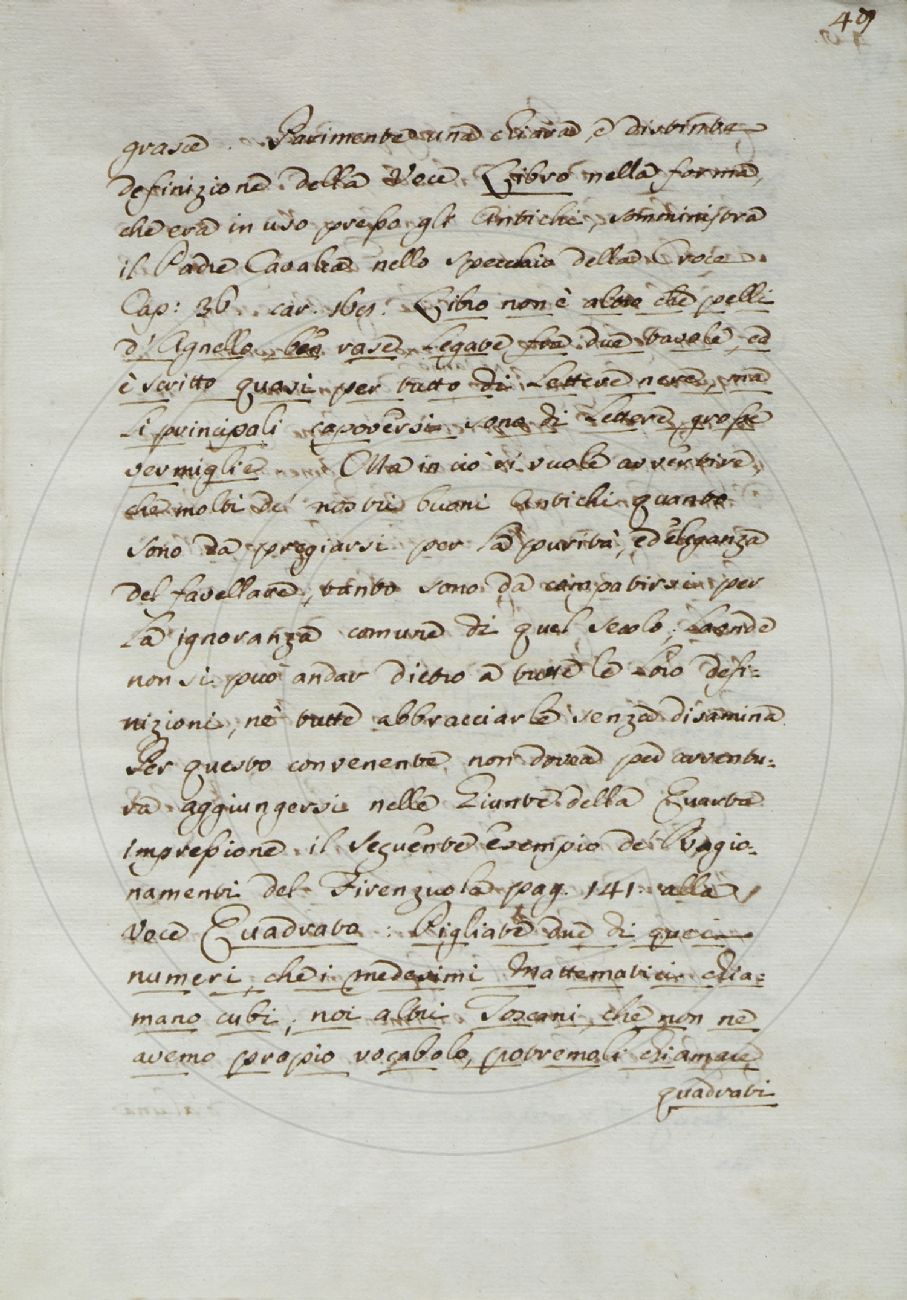 49
grasce. Parimente una chiara, e distinta
definizione della Voce Libro nella forma,
che era in uso presso gli Antichi, somministra
il Padre Cavalca nello Specchio della Croce
Cap: 36. car. 169. Libro non è altro che pelli
d'Agnello ben rase, Legate fra due tavole, ed
è scritto quasi per tutto di Lettere nere, ma
li principali capoversi sono di Lettere grosse
vermiglie. Ma in ciò si vuole avvertire,
che molti de' nostri buoni Antichi quanto
sono da pregiarsi per la purità, ed eleganza
del favellare, tanto sono da compatirsi per
la ignoranza comune di quel Secolo; Laonde
non si può andar dietro a tutte le Loro defi=
nizioni, nè tutte abbracciarle senza disamina
Per questo convenente non dovea per avventu=
ra aggiungersi nelle Giunte della Quarta
Impressione il Seguente esempio de' Ragio=
namenti del Firenzuola pag. 141. alla
Voce Quadrato: Pigliate due di quei
numeri, che i medesimi Mattematici chia=
mano cubi, noi altri Toscani, che non ne
avemo propio vocabolo, potremoli chiamare
quadrati